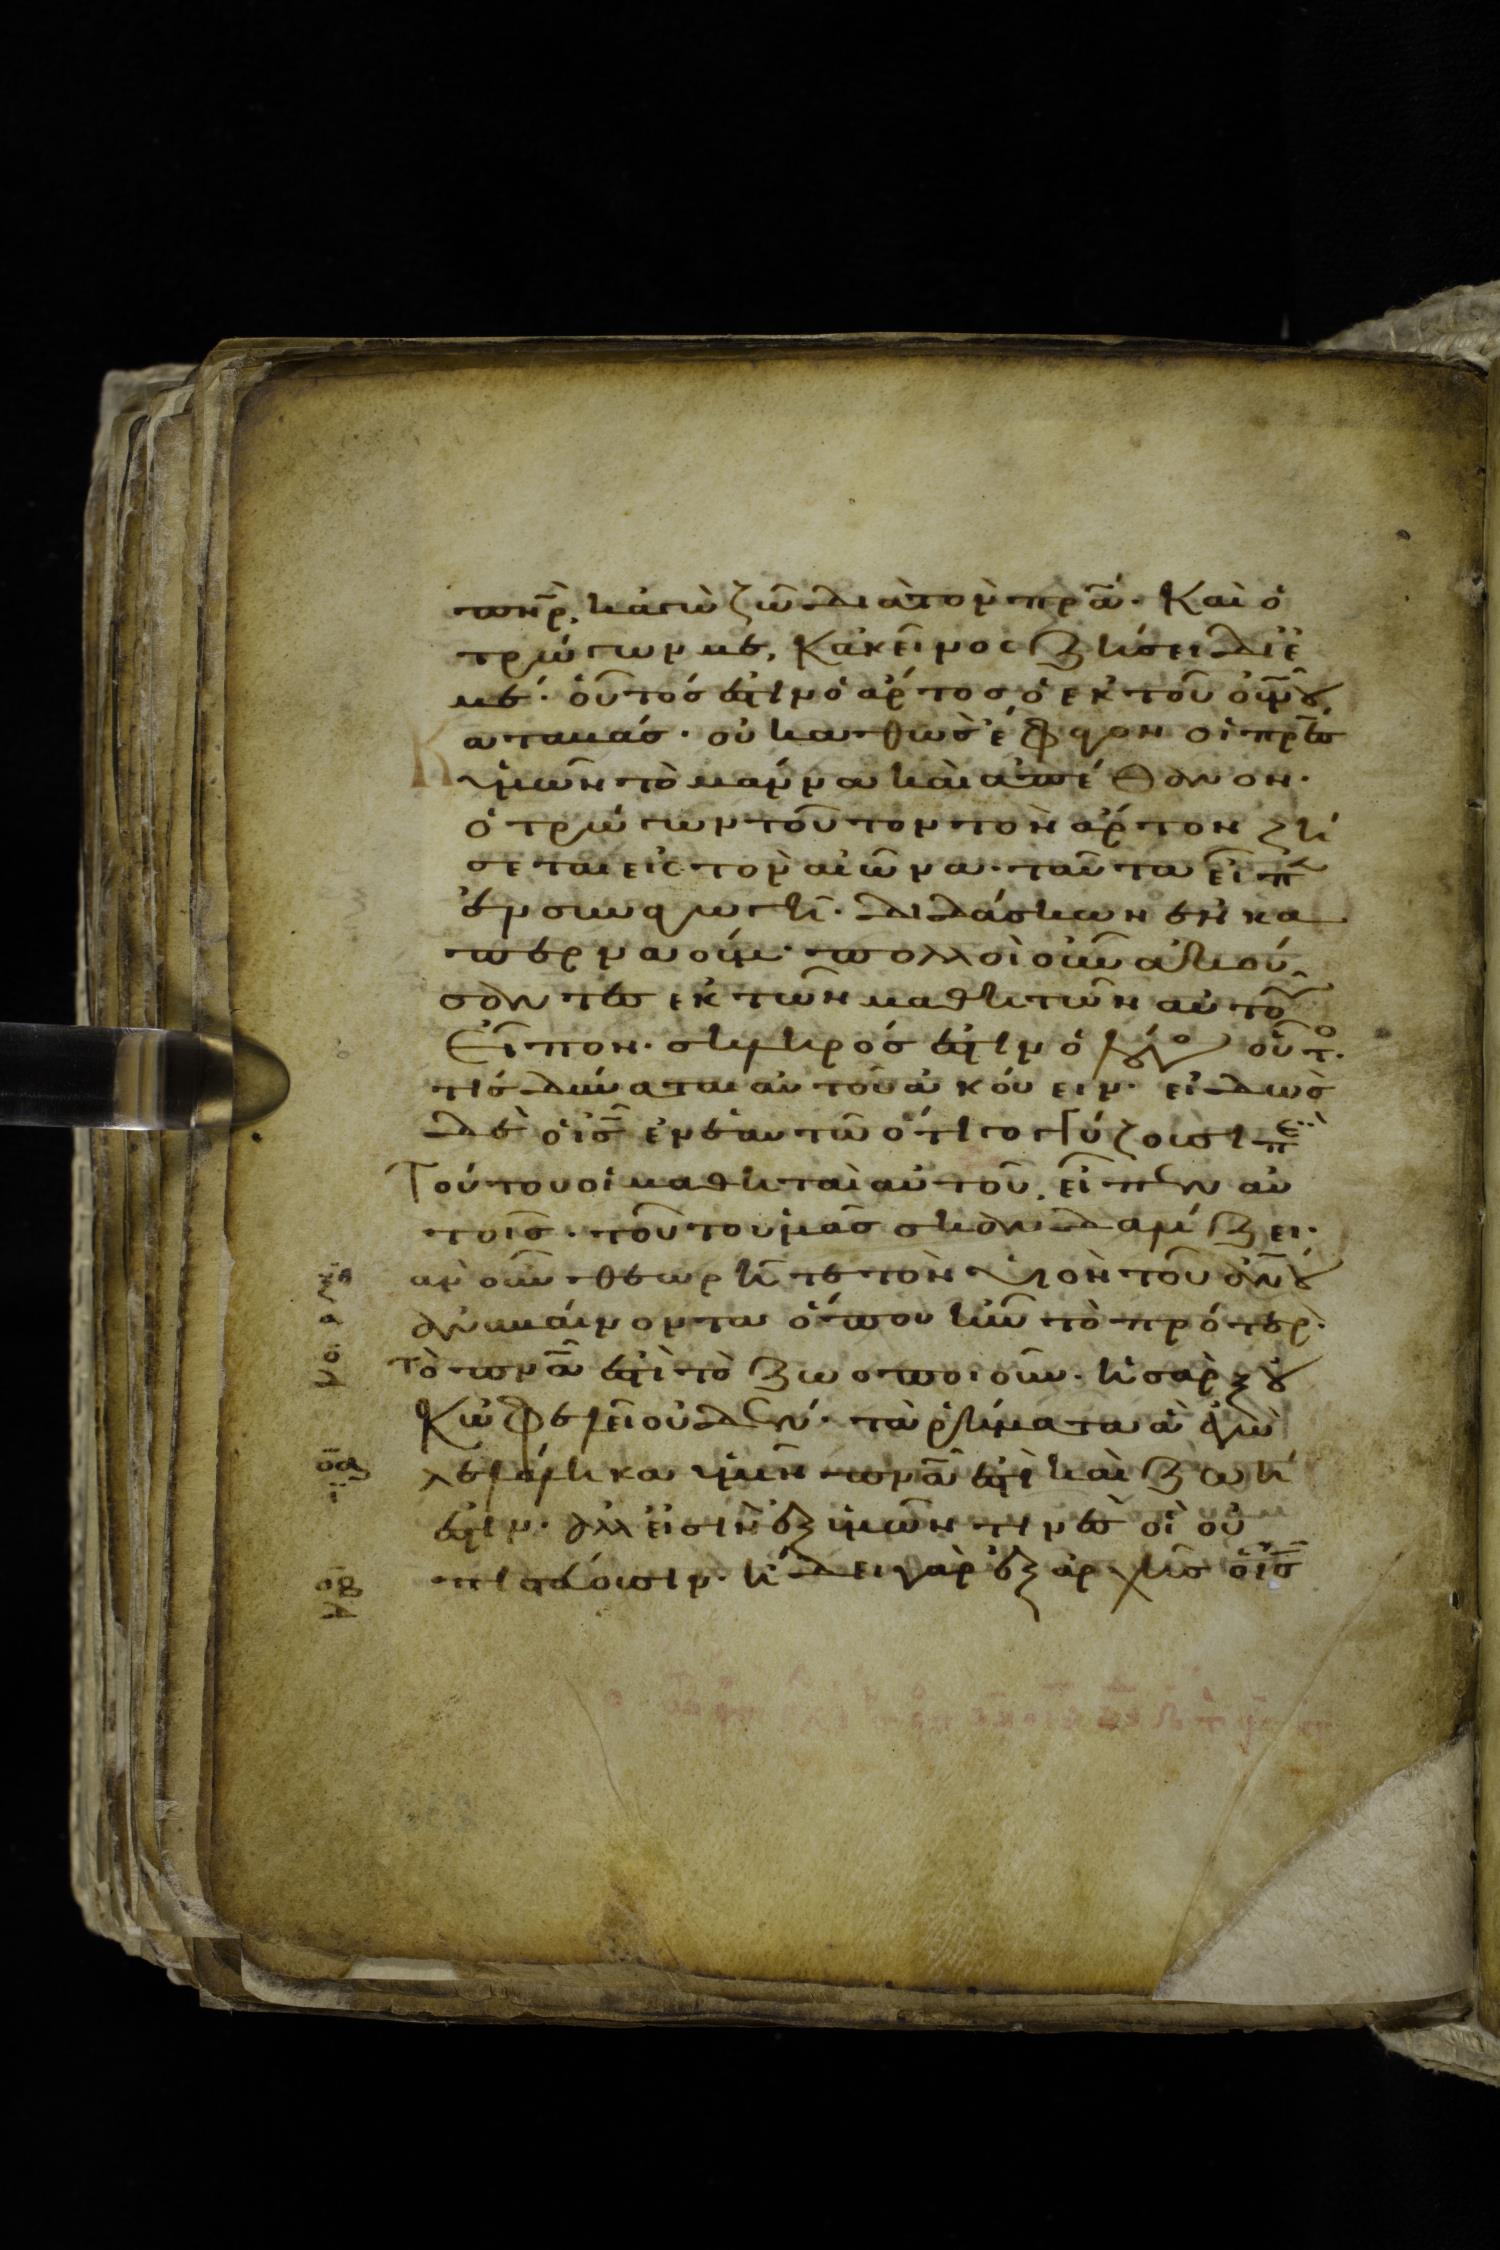 πηρ̅, κἀγὼ ζῶ διὰ τὸν πρ̅α̅· Καὶ ὁ
τρώγων με, Κἀκεῖνος ζήσει δι' ἐ
μέ· οὗτός ἐστιν ὁ ἄρτος ὁ ἐκ τοῦ οὐν̅ου̅
Καταβάς· οὐ καθὼς ἔφαγον οἱ πρ̅ες
ὑμῶν τὸ μάννα καὶ ἀπέθανον·
ὁ τρώγων τοῦτον τὸν ἄρτον ζή
σεται εἰς τὸν αἰῶνα· ταῦτα εἶπ
ἐν συναγωγῇ· διδάσκων ἐν κα
περναούμ· πολλοὶ οὖν ἀκού
σαντες ἐκ τῶν μαθητῶν αὐτοῦ
Εἶπον· σκληρός ἐστιν ὁ λόγο οὗτο·
τίς δύναται αὐτοῦ ἀκούειν· εἰδὼς
δὲ ὁ ι̅ς̅ ἐν ἑαυτῶ ὅτι γογγύζουσι πε
Τούτου οἱ μαθηταὶ αὐτοῦ, εἶπεν αὐ
τοῖς· τοῦτο ὑμᾶς σκανδαλίζει·
ἂν οὖν θεωρῆτε τὸν υἱὸν τοῦ αν̅ου̅
ἀναβαίνοντα ὅπου ἦν τὸ πρότερ·
Τὸ πν̅α̅ ἐστὶ τὸ ζωοποιοῦν· ἡ σὰρξ οὐ
Κ ὠφελεῖ οὐδέν· τὰ ῥήματα ἃ ἐγὼ
λελάληκα ὑμῖν πν̅α̅ ἐστὶ καὶ ζωή
ἐστιν· ἀλλ' εἰσὶν ἐξ ὑμῶν τινὲς οἳ οὐ
πιστεύουσιν· ἤδει γὰρ ἐξ ἀρχῆς ὁ ι̅ς̅
ο̅α̅
ο̅β̅